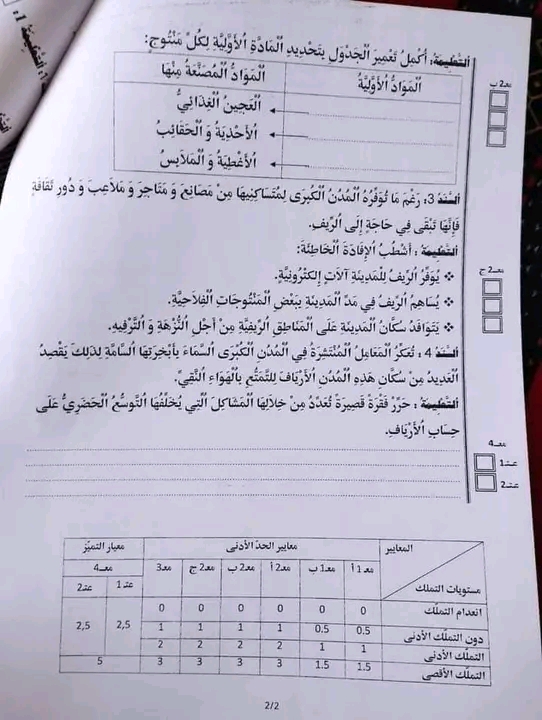 التعليمة: أكمل تعمير الجدول بتحديد المادة الأولية لكل منتوج:
المواد الأولية
المواد المصنعة منها
العجين الغذائي
الأحذية و الحقائب
الأغطية و الملابس
معـ2 ب
السند 3: رغم ما توفره المدن الكبرى لمتساكنيها من مصانع و متاجر و ملاعب و دور ثقافة
فإنها تبقى في حاجة إلى الريف.
التعليمة : أشطب الإفادة الخاطئة:
يوفر الريف للمدينة آلات إلكترونية.
يساهم الريف في مد المدينة ببعض المنتوجات الفلاحية.
يتوافد سكان المدينة على المناطق الريفية من أجل النزهة و الترفيه.
معـ2 ج
السند 4 : تعكر المعامل المنتشرة في المدن الكبرى السماء بأبخرتها السامة لذلك يقصد
العديد من سكان هذه المدن الأرياف للتمتع بالهواء النقي.
التعليمة : حرر فقرة قصيرة تعدد من خلالها المشاكل التي يخلفها التوسع الحضري على
حساب الأرياف.
معـ4
عـ1
عـ2
المعايير
معايير الحد الأدنى
معيار التميز
مستويات التملك
معـ1 أ معـ1 ب معـ2 أ معـ2 ب معـ2 ج معـ3
معـ4
عـ1 عـ2
انعدام التملك 0 0 0 0 0 0
دون التملك الأدنى 0.5 0.5 1 1 1 1 2,5 2,5
التملك الأدنى 1 1 2 2 2 2
التملك الأقصى 1.5 1.5 3 3 3 3 5
2/2